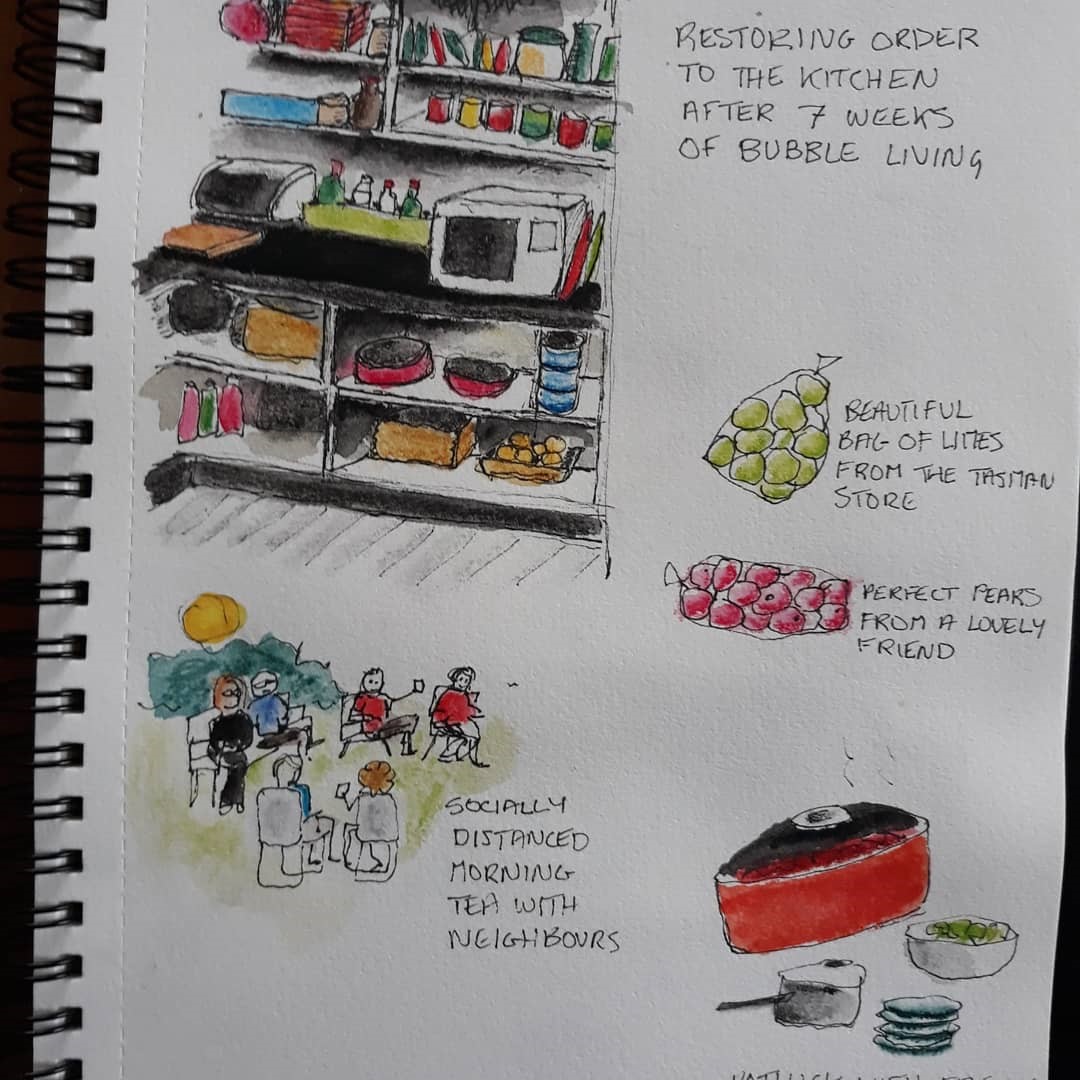 RESTORING ORDER
TO THE KITCHEN
AFTER 7 WEEKS
OF BUBBLE LIVING
BEAUTIFUL
BAG OF LIMES
FROM THE TASMAN
STORE
PERFECT PEARS
FROM A LOVELY
FRIEND
SOCIALLY
DISTANCED
MORNING
TEA WITH
NEIGHBOURS